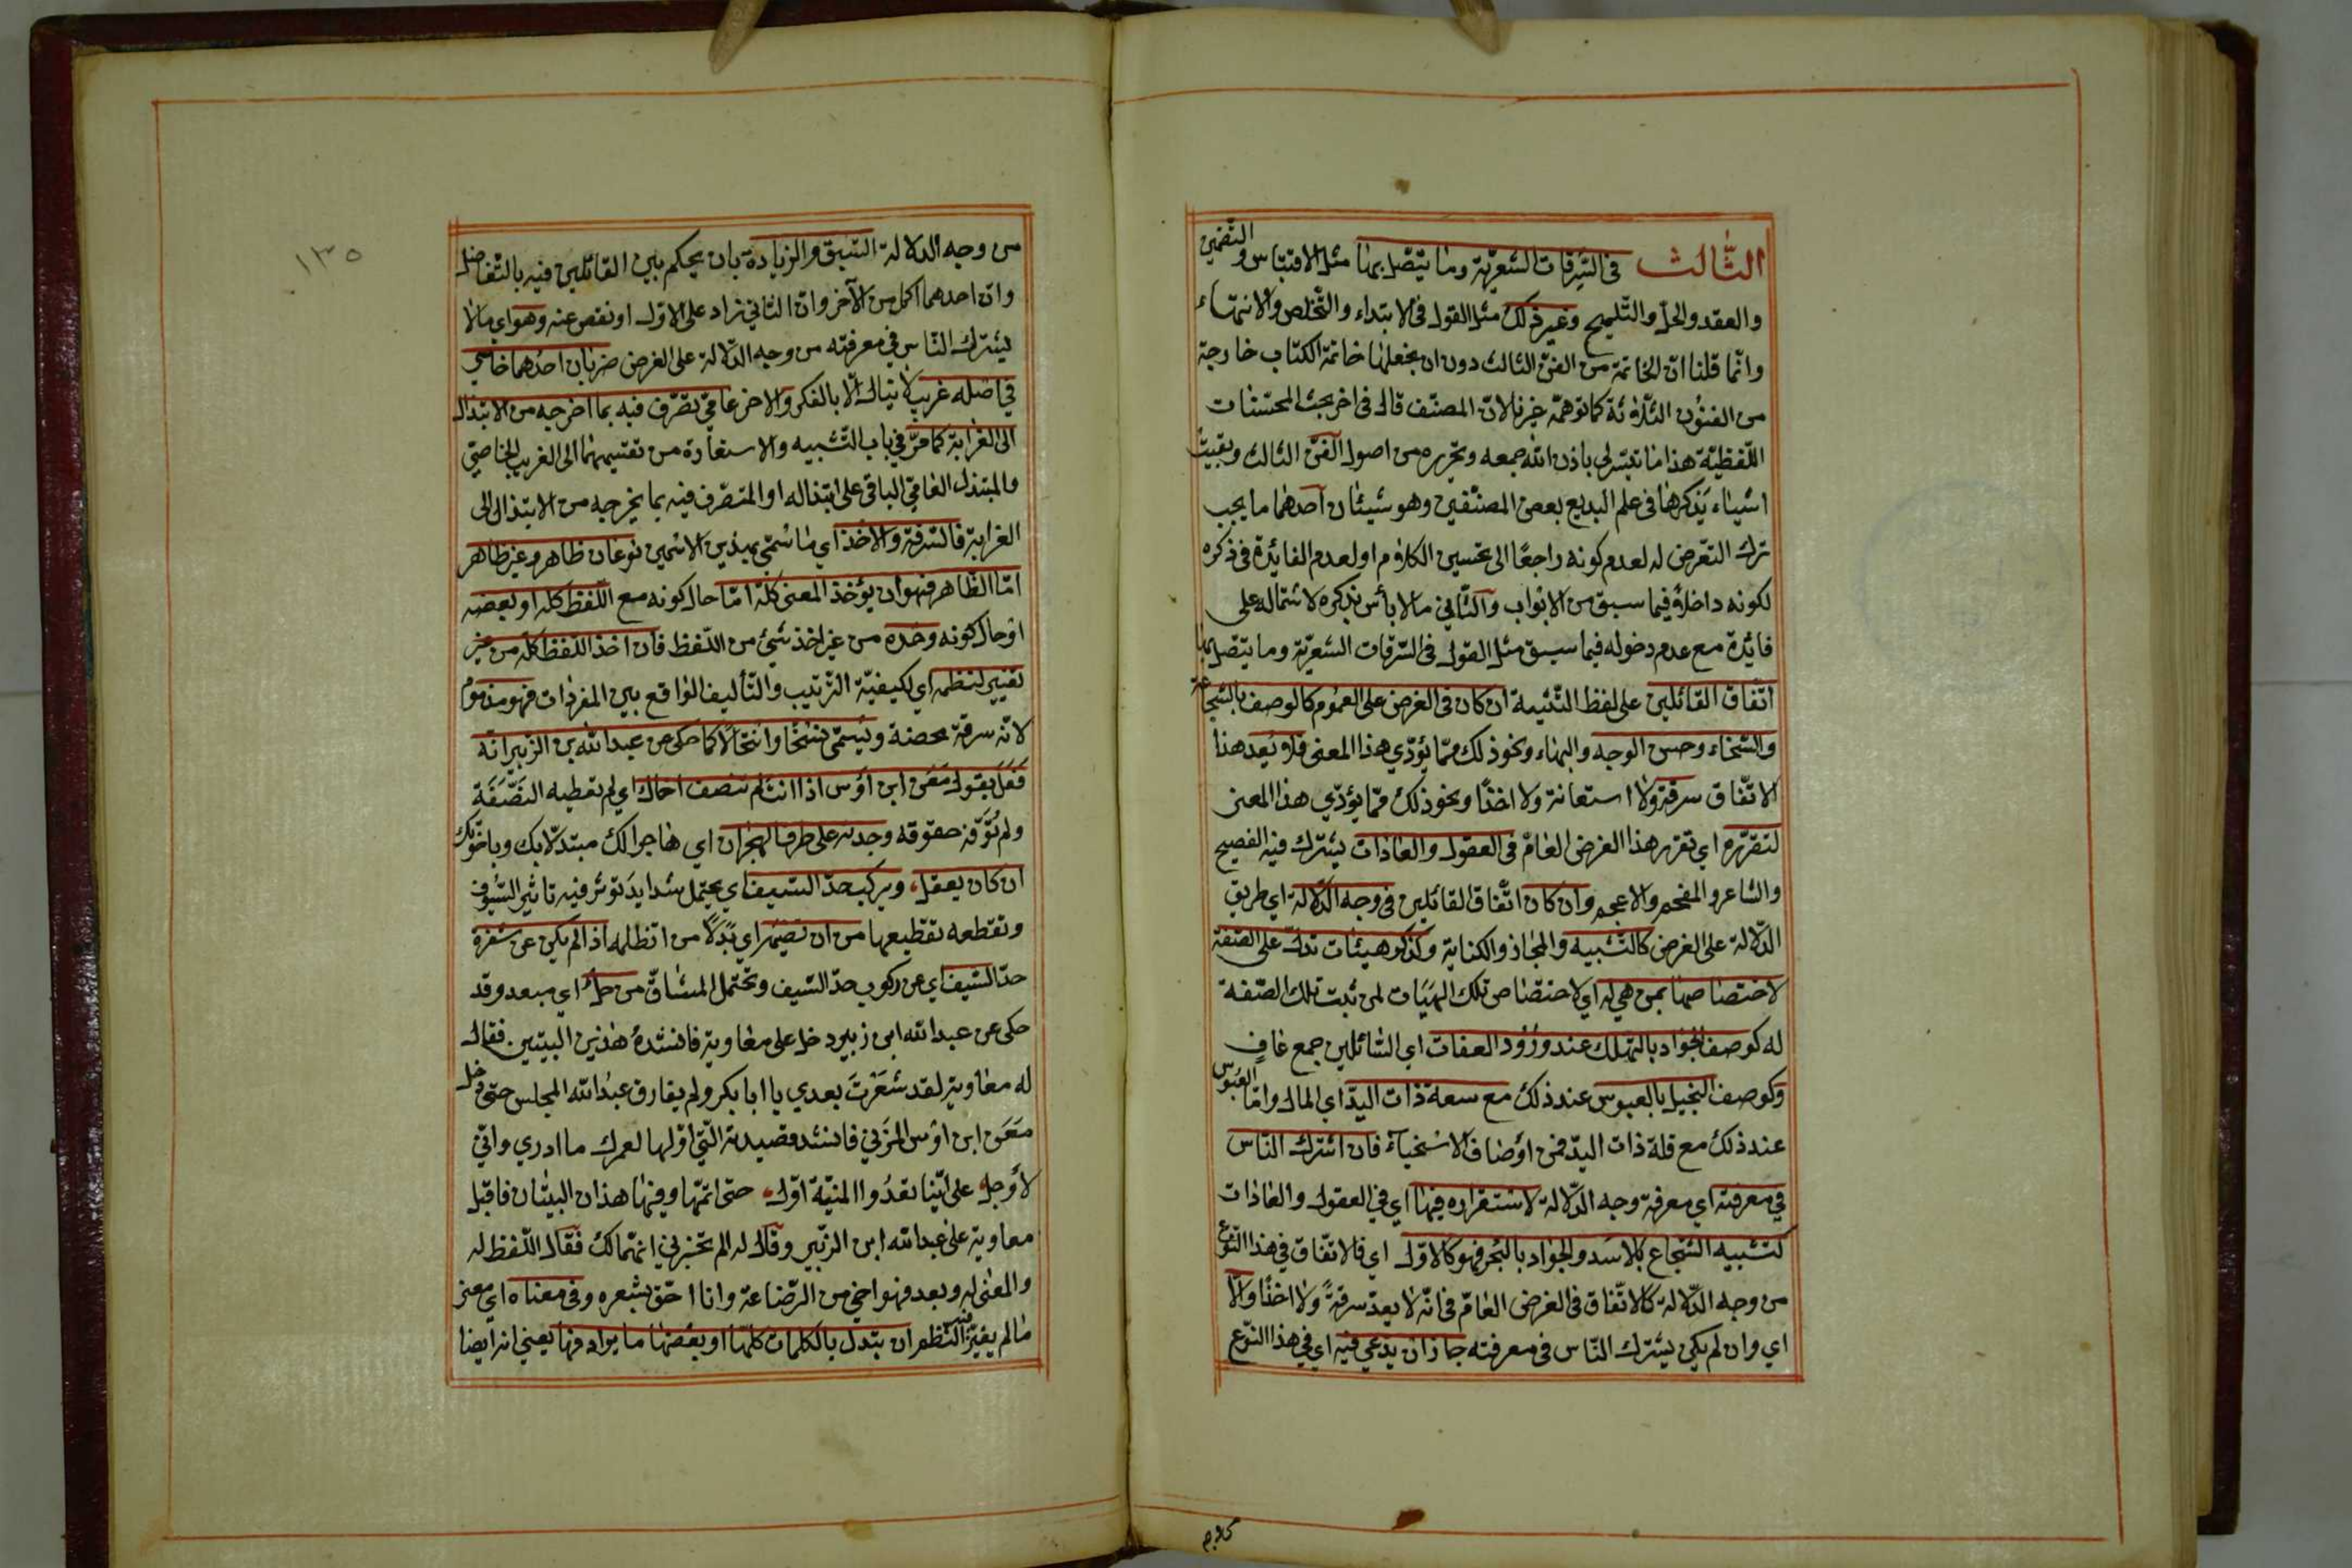 الثَّالث في السّرقات الشعريّة وما يتّصل بها مثل الاقتباس والتضمين
والعقد والحلّ والتّلميح وغير ذلك مثل القول في الابتداء والتّخلص والانتهاء
وانّما قلنا انّ الخاتمة من الفنّ الثالث دون ان نجعلها خاتمة الكتاب خارجة
من الفنون الثّلاثة كما توهّمه غيرنا لانّ المصنّف قال في اخر بحث المحسّنات
اللّفظيّة هذا ما تيسّر لي باذن الله جمعه وتحريره من اصول الفنّ الثالث وبقيت
اشياء يذكرها في علم البديع بعض المصنّفين وهو شيئان احدهما ما يجب
ترك التعّرض له لعدم كونه راجعًا الى تحسين الكلام او لعدم الفائدة في ذكره
لكونه داخلاً فيما سبق من الابواب والثّاني ما لا بأس بذكره لاشتماله على
فائدة مع عدم دخوله فيما سبق مثل القول في السّرقات الشعريّة وما يتّصل بها
اتّفاق القائلين على لفظ التّثنية ان كان في الغرض على العموم كالوصف بالشجاعة
والسّخاء وحسن الوجه والبهاء ونحو ذلك ممّا يؤدّي هذا المعنى فلا يُعد هذا
الاتّفاق سرقة ولا استعانة ولا اخذًا ونحو ذلك ممّا يؤدّي هذا المعنى
لتقرّره اي تقرر هذا الغرض العامّ في العقول والعادات يشترك فيه الفصيح
والشاعر والمفحم والاعجم وان كان اتّفاق القائلين في وجه الدّلالة اي طريق
الدّلالة على الغرض كالتّشبيه والمجاز والكناية وكذكر هيئات تدلّ على الصّفة
لاختصاصها بمن هي له اي لاختصاص تلك الهيَئات لمن ثبت تلك الصّفة
له كوصف الجواد بالتهلّل عند ورُود العفات اي السّائلين جمع عافٍ
وكوصف البخيل بالعبوس عند ذلك مع سعة ذات اليدّ اي المال وامّا العبُوس
عند ذلك مع قلة ذات اليدّ فمن اوْصاف الاسْخياء فان اشترك النّاس
في معرفته اي معرفة وجه الدّلالة لاسْتقراره فيها اي في العقول والعادات
كتشبيه الشّجاع بالاسَد والجوَاد بالبَحر فهو كالاوّل اي فالاتّفاق في هذا النّوع
من وجه الدّلالة كالاتّفاق في الغرض العامّ في انّه لا يعدّ سرقةً ولا اخذًا والّا
اي وان لم يكن يشترك النّاس في معرفته جاز ان يدّعي فيه اي في هذا النّوع
كلام
١٣٥
من وجه الدلالة السّبق والزيادة بان يحكم بين القائلين فيه بالتّفاضل
وانّ احدهما اكمل من الآخر وانّ الثاني زاد على الاوّل او نقص عنه وهو اي ما لا
يشترك النّاس في معرفته من وجه الدّلالة على الغرض ضربان احدُهما خاصّي
في اصْله غريب لا ينال الّا بالفكر والاخر عاميّ تصّرف فيه بما اخرجه من الابتذال
الى الغرابة كما مرّ في باب التّشبيه والاستعارة من تقسيمهما الى الغريب الخاصّي
والمبتذل العاميّ الباقي على ابتذاله او المتصّرف فيه بما يخرجه من الابتذال الى
الغرابة فالسّرقة والاخْذ اي ما سُمّي بهذين الاسْمين نوعان ظاهر وغير ظاهر
امّا الظّاهر فهو أن يؤخذ المعنى كلّه امّا حال كونه مع اللّفظ كله او بعضه
اوْ حال كونه وحْده من غير اخذ شئ من اللّفظ فان اخذ اللّفظ كله من غير
تغيير لنظمه اي لكيفيّة التّرتيب والتّأليف الواقع بين المفردات فهو مذموم
لانّه سرقة محضة ويُسمّى نسْخًا وانتحالاً كما حكى عن عبد الله بن الزّبير انّه
فعَل بقول مَعَن ابن اوَس اذا انت لم تنصف اخاك اي لم تعطيه النصَفَة
ولم تُوَفّه حقوقه وجدته على طرف الهجران اي هاجرا لك مبتدّلا بك وباخوّتك
ان كان يعقل، ويركب حدّ السّيف اي يحتمل شدايدَ توثر فيه تاثير السّيُوف
وتقطعه تقطيعها من ان تضيمَه اي بَدَلاً من ان تظلمه اذا لم يكن عن شفرة
حدّ السّيف اي عن ركوب حدّ السّيف وتحتمل المشاقّ من حلّ اي مبعد وقد
حكى عن عبد الله ابن زبير دخل على معاوية فانشدهُ هٰذين البيتين. فقال
له معاوية لقد شعَرْتَ بعدي يا ابا بكر ولم يفارق عبدُ الله المجلس حتى دخل
مَعَن ابن اوْس المزَني فانشد قصيدته الّتي اوّلها لعمرك ما ادري وانّي
لأوجل على ايّنا تعدُوا المنيّة اوّل حتى اتمّها وفيها هذان البيتان فاقبل
معاوية على عبد الله ابن الزّبير وقال له الم تخبرني انهما لك فقال اللّفظ له
والمعنى لي وبعد فهو اخي من الرّضاعة وانا احقّ بشعره وفي معناه اي معنى
ما لم يغيّر فيه النّظم ان يتبدل بالكلمات كلهّا او بعْضها ما يرادفها يعني انه ايضا